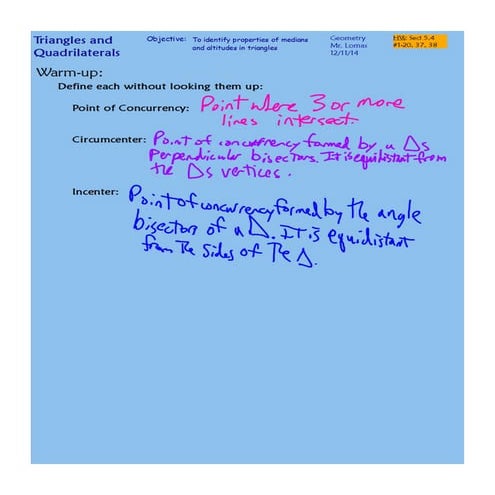 Triangles and Quadrilaterals
Objective: To identify properties of medians and altitudes in triangles
Geometry
Mr. Lomas
12/11/14
HW: Sect 5.4
#1-20, 37, 38
Warm-up:
Define each without looking them up:
Point of Concurrency: Point where 3 or more
lines intersect.
Circumcenter: Point of concurrency formed by a Δs
perpendicular bisectors. It is equidistant from
the Δs vertices.
Incenter: Point of concurrency formed by the angle
bisectors of a Δ. It is equidistant
from the sides of the Δ.